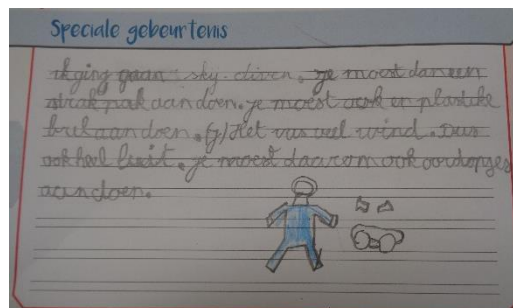 Speciale gebeurtenis
ik ging gaan sky-diven. je moest dan een
strak pak aandoen. je moest ook en plastike
bril aandoen. (j) Het was veel wind. Dus
ook heel luit. je moest daarom ook oordopjes
aandoen.